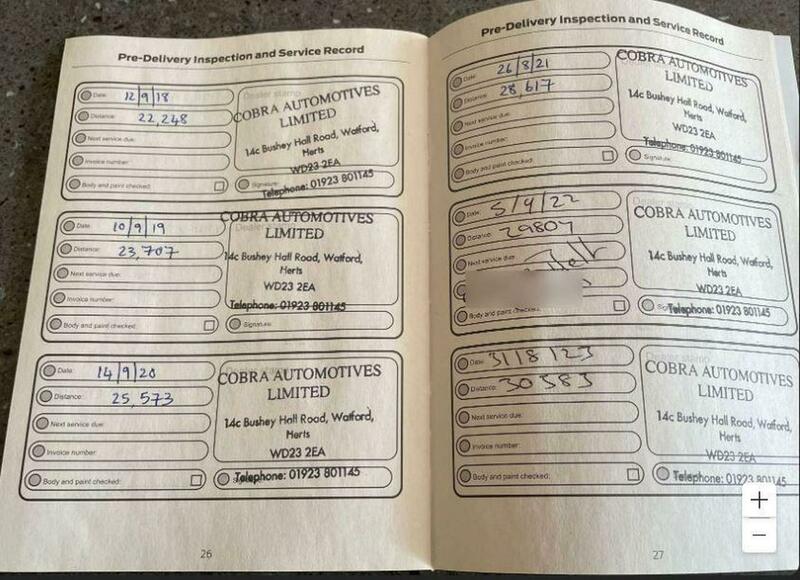 Pre-Delivery Inspection and Service Record
Date: 12/9/18
Distance: 22,248
Next service due:
Invoice number:
Body and paint checked:
Dealer stamp
COBRA AUTOMOTIVES
LIMITED
14c Bushey Hall Road, Watford,
Herts
WD23 2EA
Signature:
Telephone: 01923 801145
Date: 10/9/19
Distance: 23,707
Next service due:
Invoice number:
Body and paint checked:
COBRA AUTOMOTIVES
LIMITED
14c Bushey Hall Road, Watford,
Herts
WD23 2EA
Telephone: 01923 801145
Signature:
Date: 14/9/20
Distance: 25,573
Next service due:
Invoice number:
Body and paint checked:
COBRA AUTOMOTIVES
LIMITED
14c Bushey Hall Road, Watford,
Herts
WD23 2EA
Telephone: 01923 801145
26
Pre-Delivery Inspection and Service Record
Date: 26/8/21
Distance: 28,617
Next service due:
Invoice number:
Body and paint checked:
COBRA AUTOMOTIVES
LIMITED
14c Bushey Hall Road, Watford,
Herts
WD23 2EA
Telephone: 01923 801145
Signature:
Date: 5/9/22
Distance: 29807
Next service due:
Body and paint checked:
Dealer stamp
COBRA AUTOMOTIVES
LIMITED
14c Bushey Hall Road, Watford,
Herts
WD23 2EA
Telephone: 01923 801145
Date: 31/8/23
Distance: 30583
Next service due:
Invoice number:
Body and paint checked:
Dealer stamp
COBRA AUTOMOTIVES
LIMITED
14c Bushey Hall Road, Watford,
Herts
WD23 2EA
Telephone: 01923 801145
27